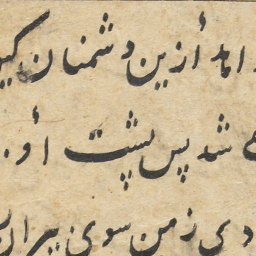 اماد أزین دشمنان کین
شد پس پشت أو
دی ز من سوی پیران